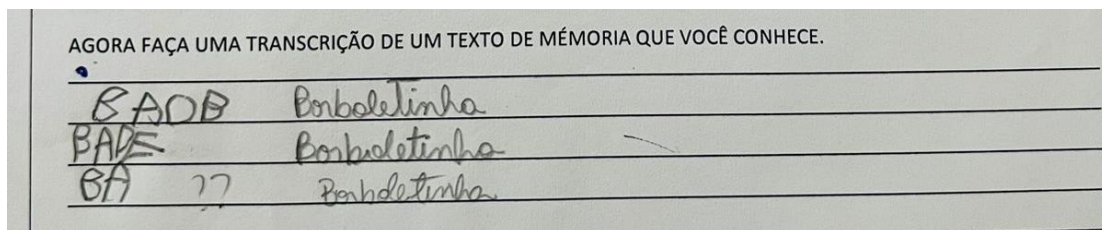 AGORA FAÇA UMA TRANSCRIÇÃO DE UM TEXTO DE MÉMORIA QUE VOCÊ CONHECE.
BADB Borboletinha
BADE Borboletinha
BA ?? Borboletinha